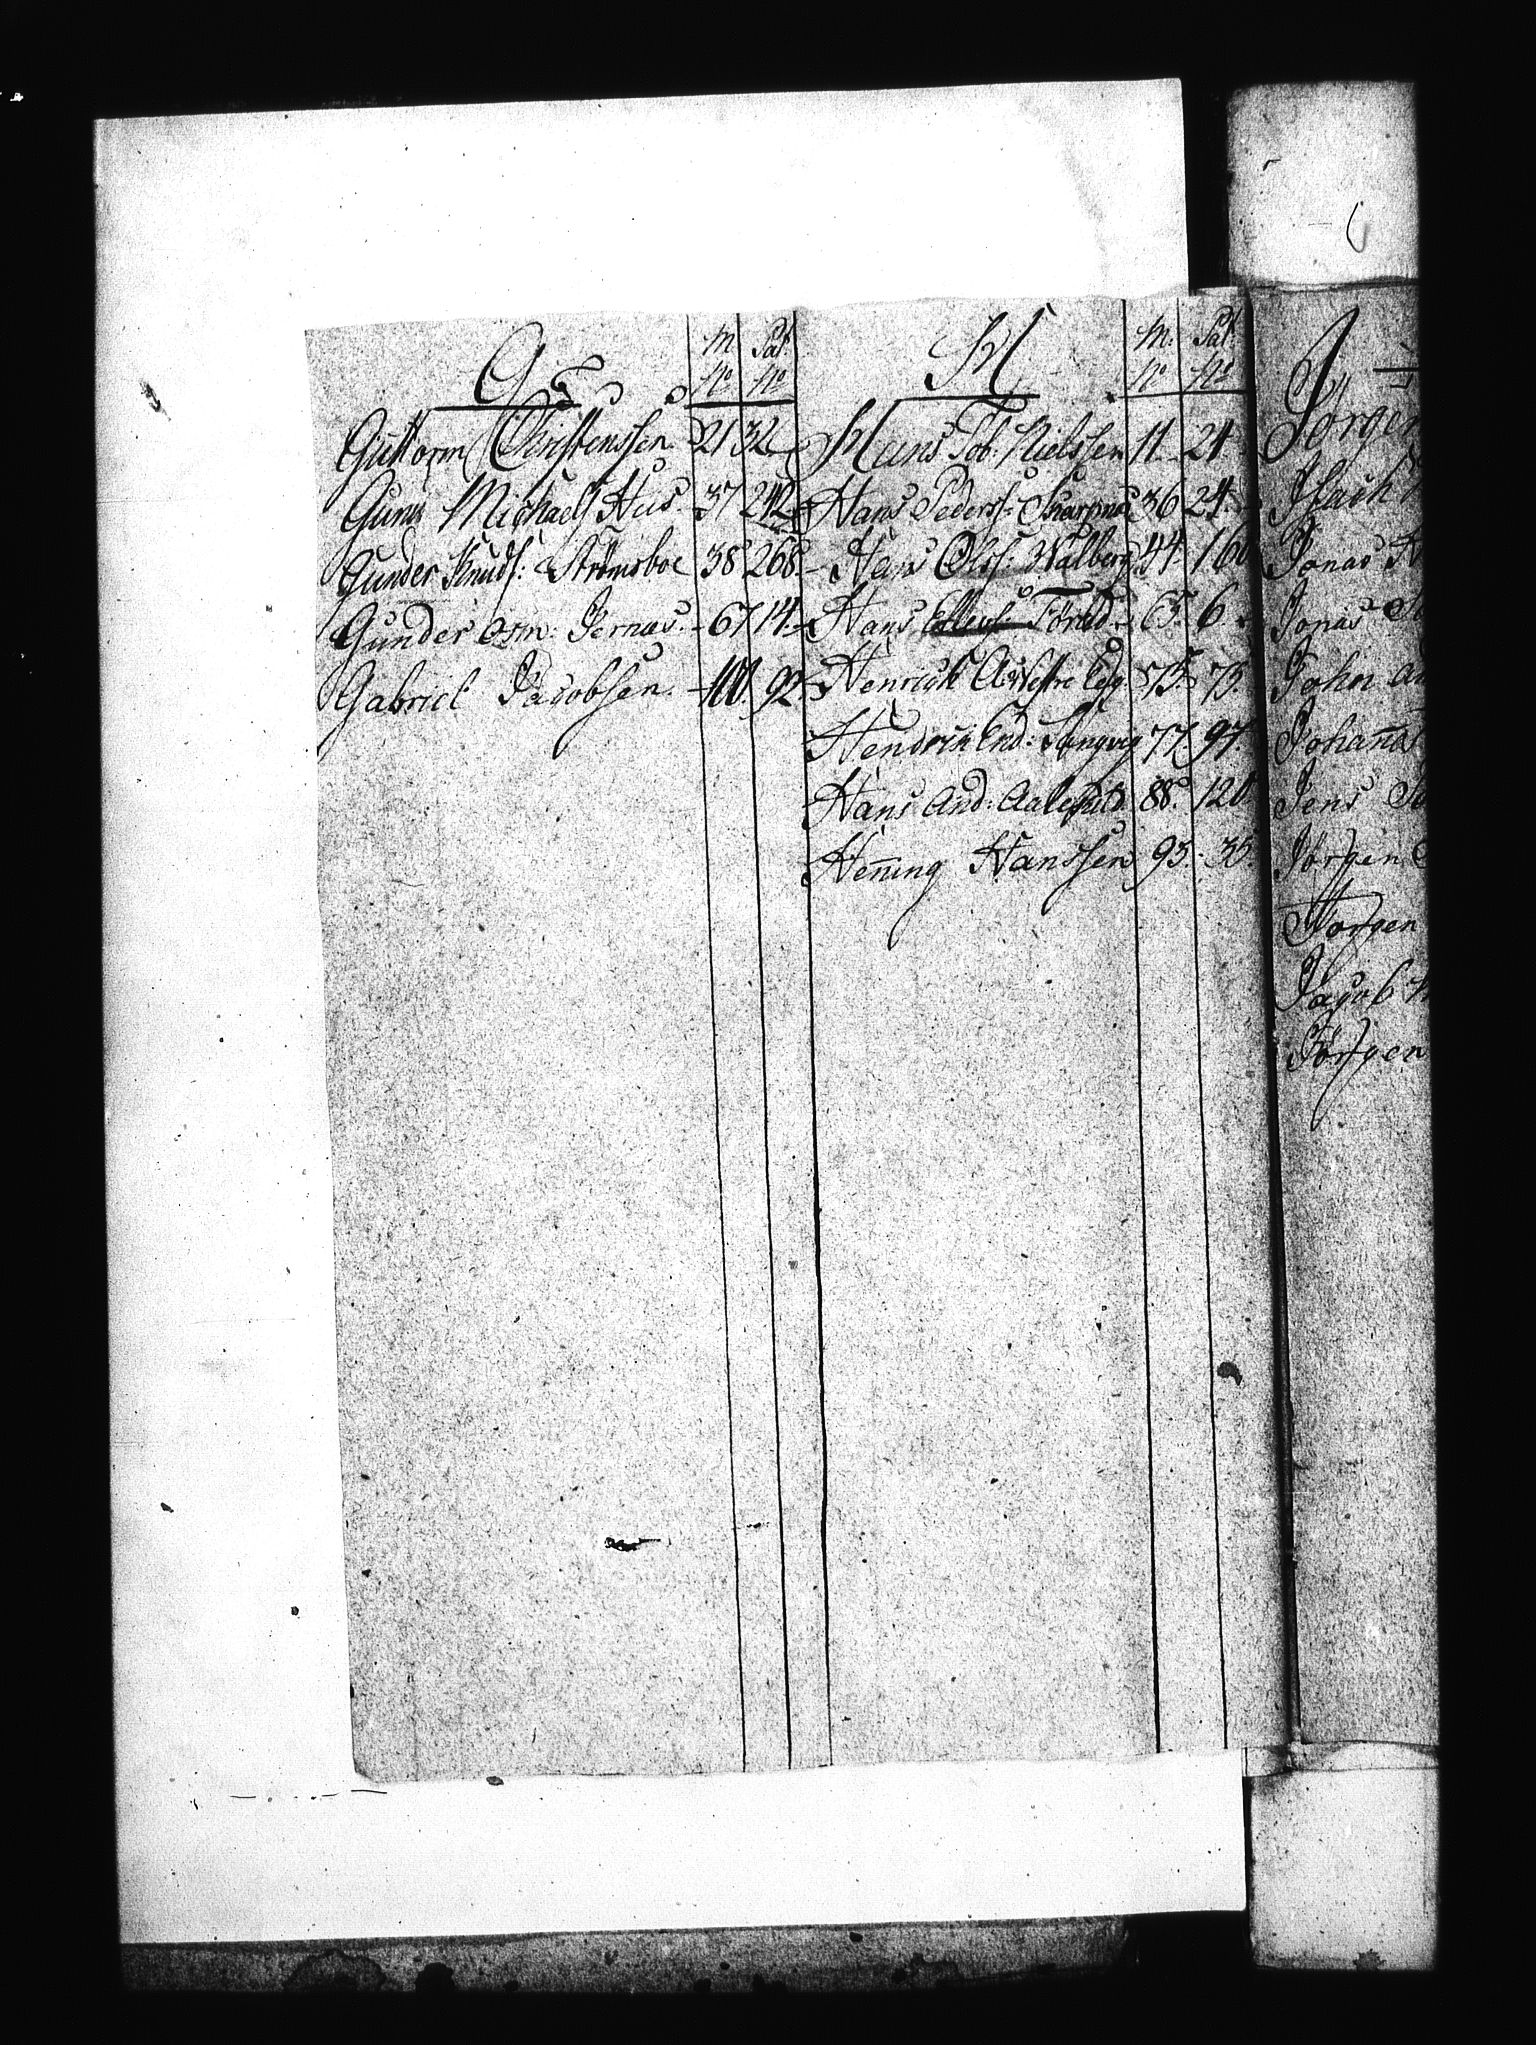 G
M Pat.
No No
Guttorm Christenssen 21 32
Gunn Michaels Hus. 37 242
Gunder Knuds: Strömsboe 38 268
Gunder Osm: Jernæs. 67 14
Gabriel Jacobsen. 100. 92.
H
M. Pat.
No No
Hans Tob: Nielssen 11 24
Hans Peders: 36 24
Hans Ols: Walberg 44 160
Hans Ellevs: 65. 6
Henrich 73. 73.
Hendrich End: 77. 97.
Hans And: Aalefield 88. 120
Hening Hanssen 93. 35.
I
Jörgen
Isach
Jonas
Jonas
John
Johanes
Jens
Jörgen
Jörgen
Jacob
Jörgen